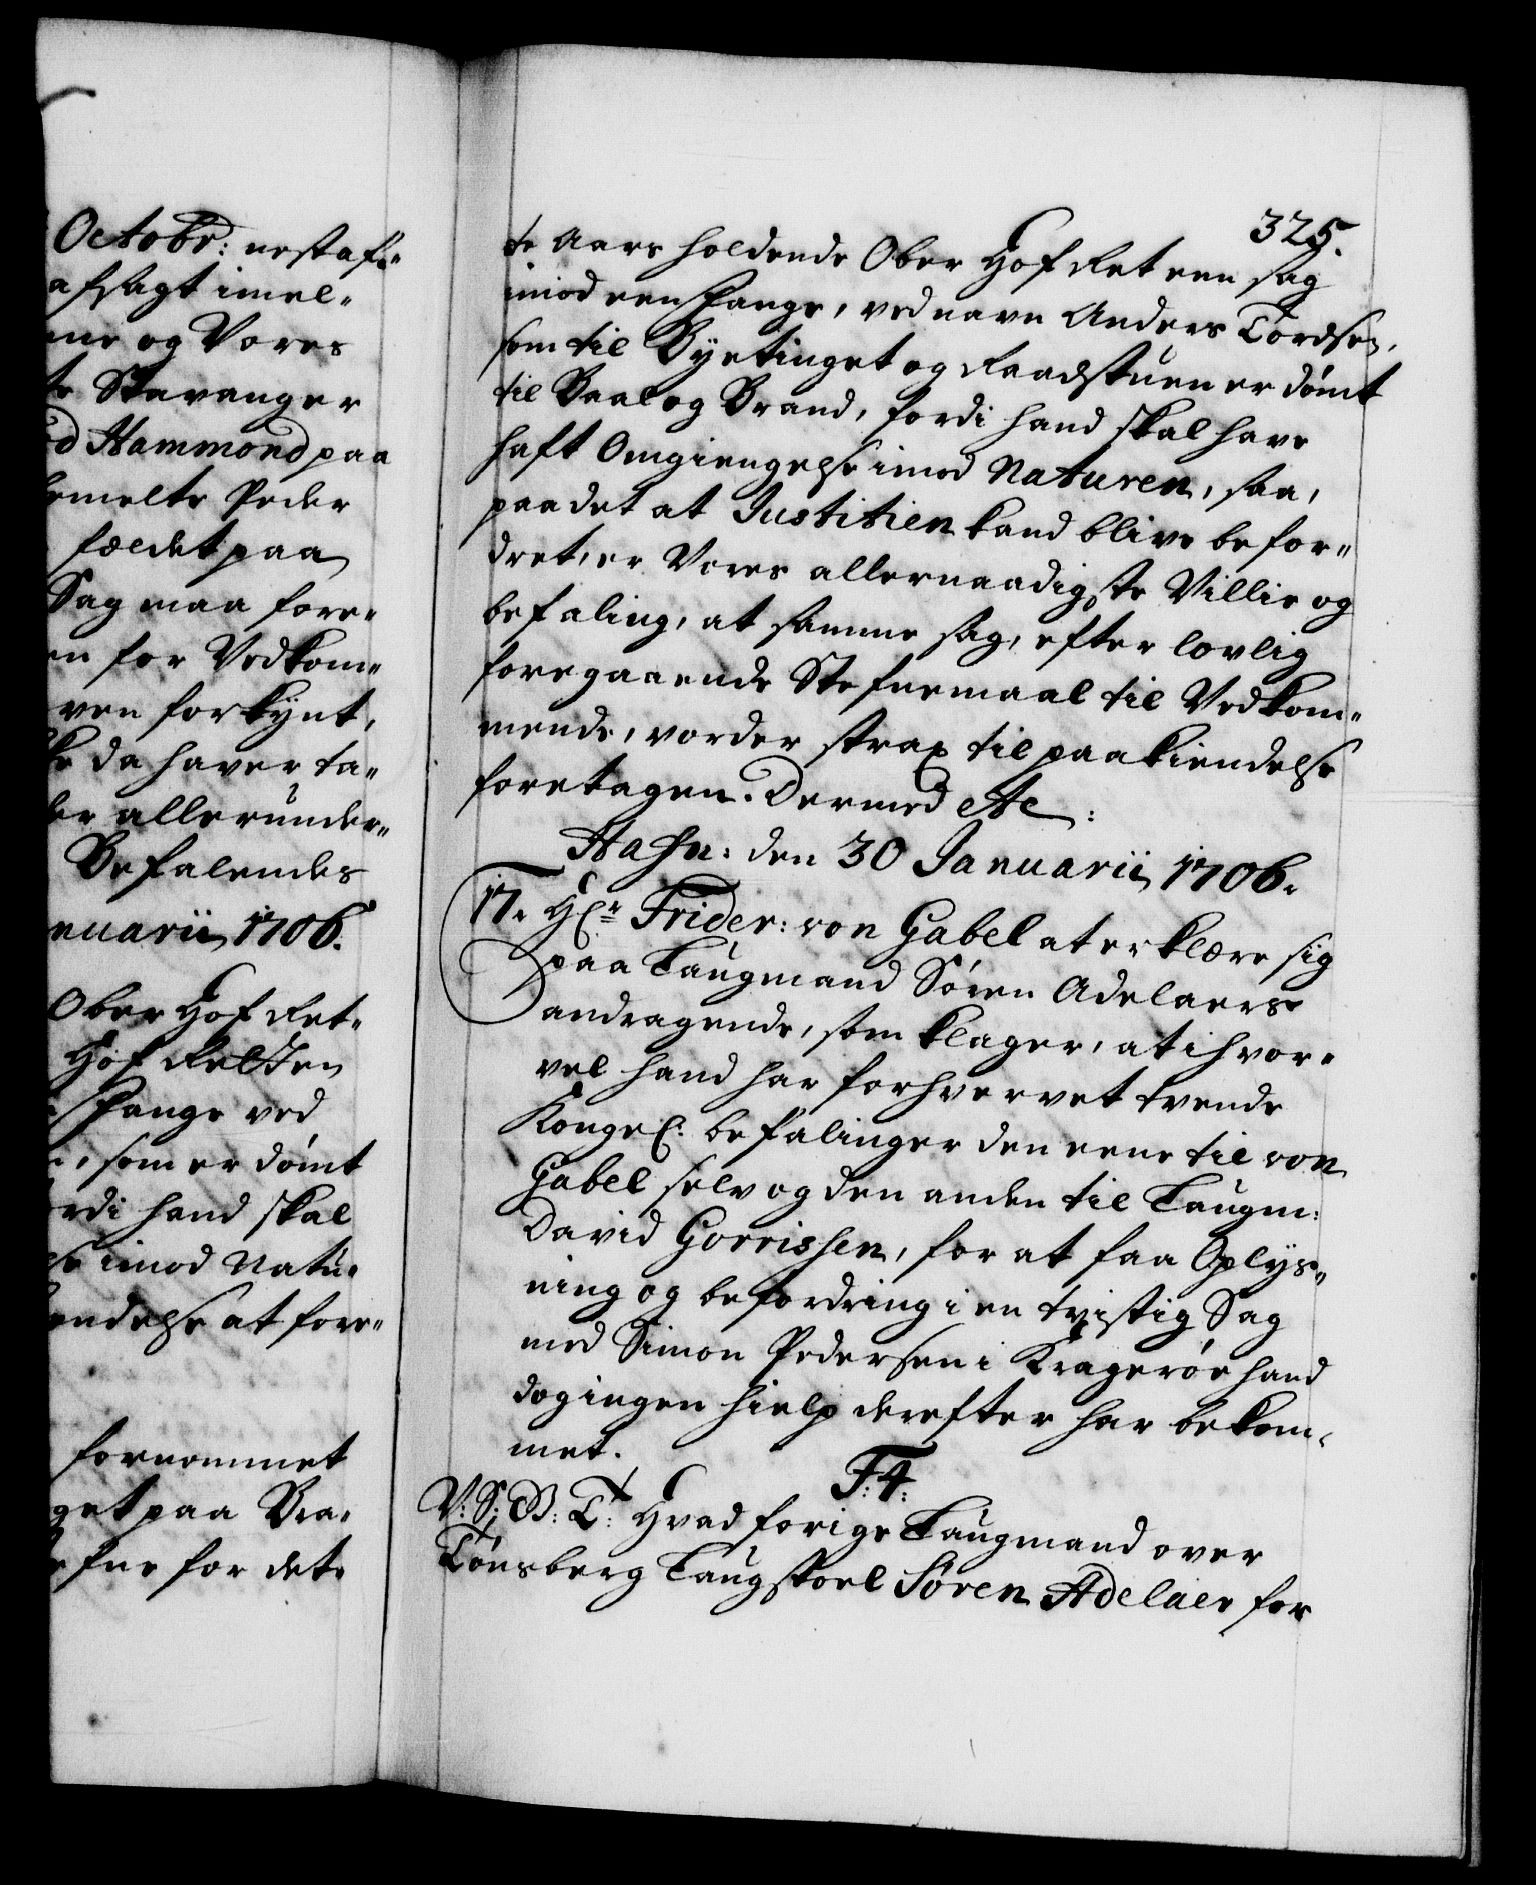 Octobr: nest af„
afsagt imel„
nne og Vores
te Stavanger
ed Hammond paa
bemelte Peder
fældet paa
Sag maa fore„
en for Vedkom„
ven forkynt,
ke da haver ta„
er allerunder„
Befalendes
nuarii 1706.
Ober Hof Ret„
Hof Retten
Fange ved
, som er dømt
rdi hand skal
se imod Natu„
endelse at fore„
fornommet
get paa Bra„
efne for det„
325.
te Aars holdende Ober Hof Ret een sag
imod een Fange, ved navn Anders Tordsen,
som til Byetinget og Raadstuen er dømt
til Baal og Brand, fordi hand skal have
haft Omgiengelse imod Naturen, saa,
paa det at Justitien kand blive befor„
dret, er Vores allernaadigste Villie og
befaling, at samme sag, efter lovlig
foregaaende Stefnemaal til Vedkom„
mende, vorder strax til paakiendelse
foretagen. Dermed etc:
Hafn: den 30 Januarii 1706.
17. Hr Frider: von Gabel at erklære sig
paa Laugmand Søren Adelaers
andragende, som klager, at ihvor„
vel hand har forhvervet tvende
Kongel: befalinger den eene til von
Gabel selv og den anden til Laugm:
David Gorrissen, for at faa Oplys„
ning og befordring i en tvistig Sag
med Simon Pedersen i Kragerøe hand
dog ingen hielp derefter har bekom„
met.
F: 4:
V: S: G: T: Hvad forige Laugmand over
Tønsberg Laugstoel Søren Adelaer for